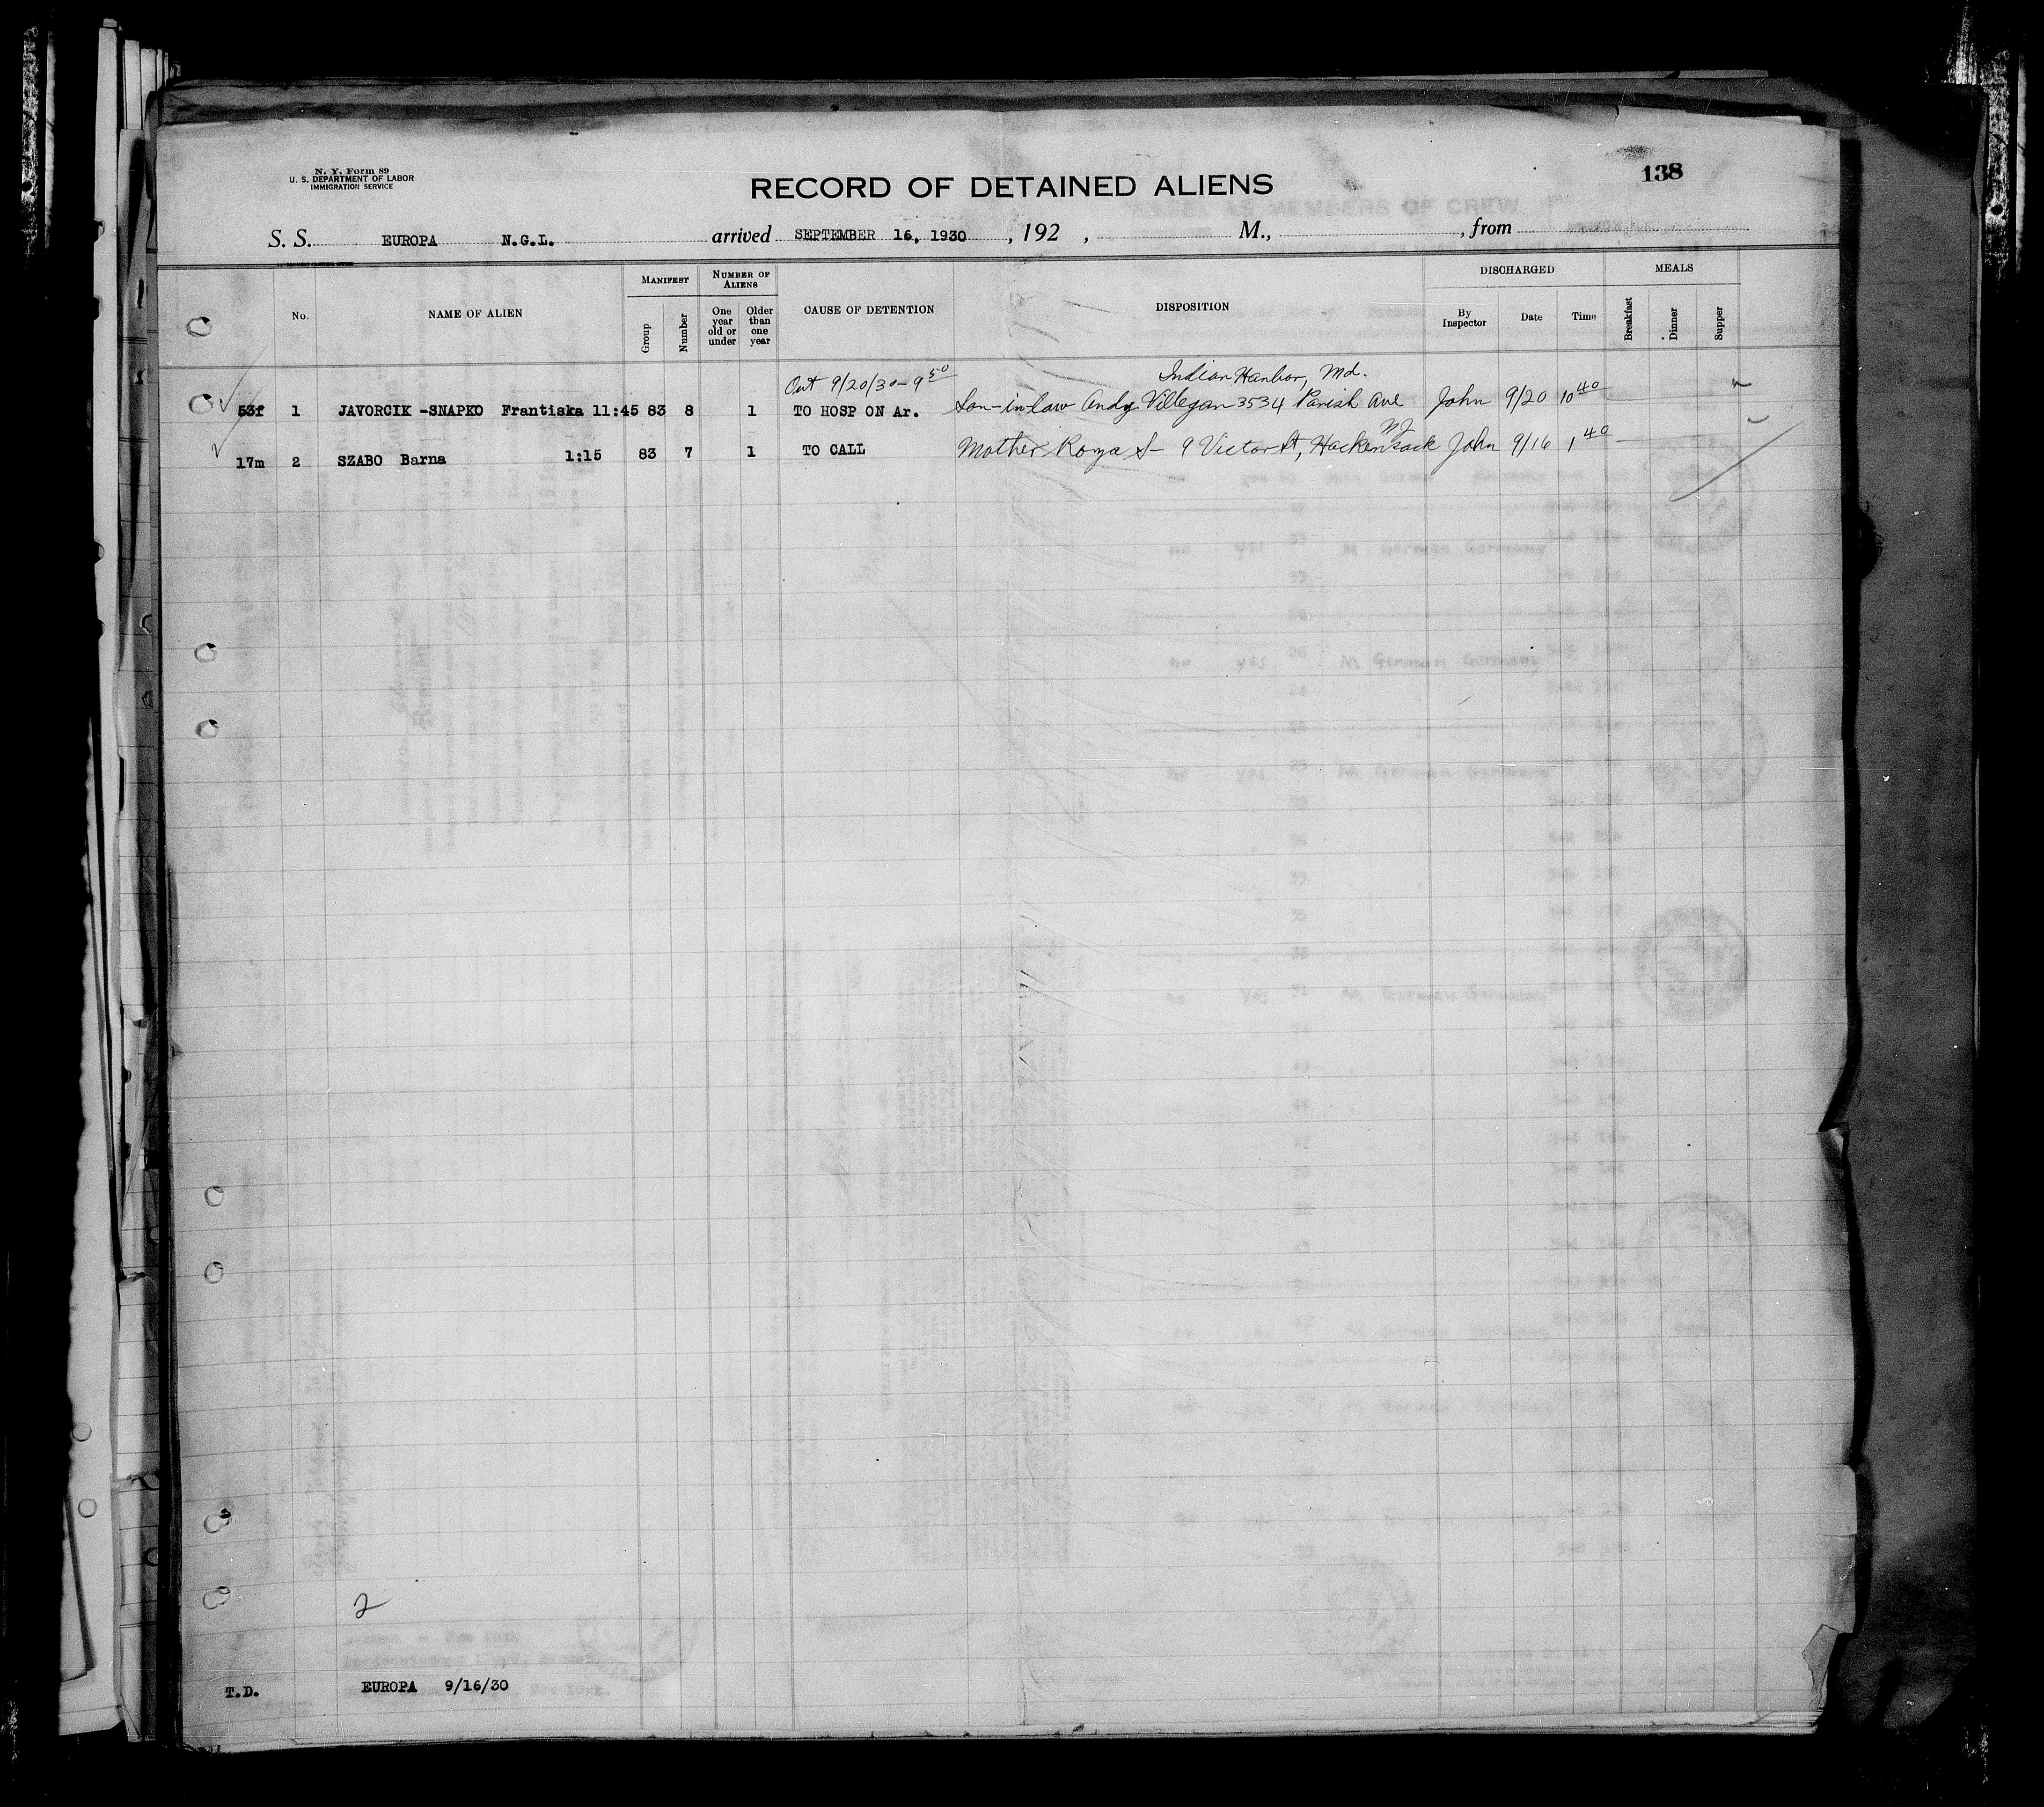 N. Y. Form 89
U. S. DEPARTMENT OF LABOR
IMMIGRATION SERVICE
138
RECORD OF DETAINED ALIENS
S. S. EUROPA N.G.L. arrived SEPTEMBER 16, 1930, 192 , M., , from
No. NAME OF ALIEN MANIFEST Group Number NUMBER OF ALIENS One year old or under Older than one year CAUSE OF DETENTION DISPOSITION DISCHARGED By Inspector Date Time MEALS Breakfast Dinner Supper
Out 9/20/30 - 9 50 Indian Harbor, Md.
53f 1 JAVORCIK -SNAPKO Frantiska 11:45 83 8 1 TO HOSP ON Ar. Son-in-law Andy Villegan 3534 Parish Ave John 9/20 10 40
NJ
17m 2 SZABO Barna 1:15 83 7 1 TO CALL Mother Roza S- 9 Victor St, Hackensack John 9/16 1 40
2
T.D. EUROPA 9/16/30